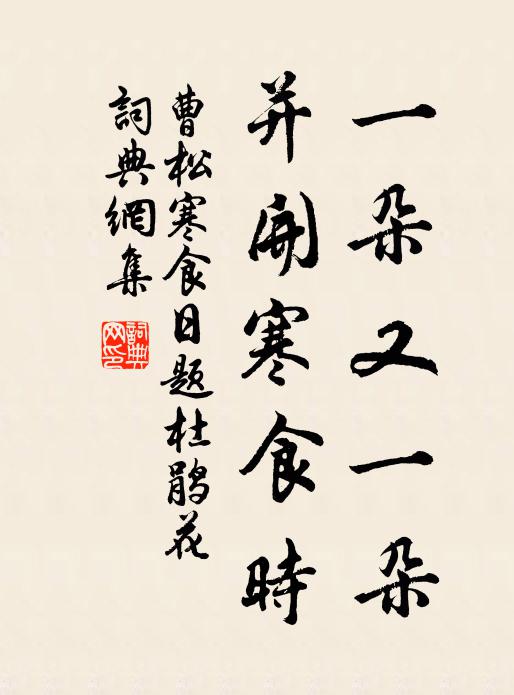 一朵又一朵
并開寒食時
曹松寒食日題杜鵑花
詞典網集
詞典网印